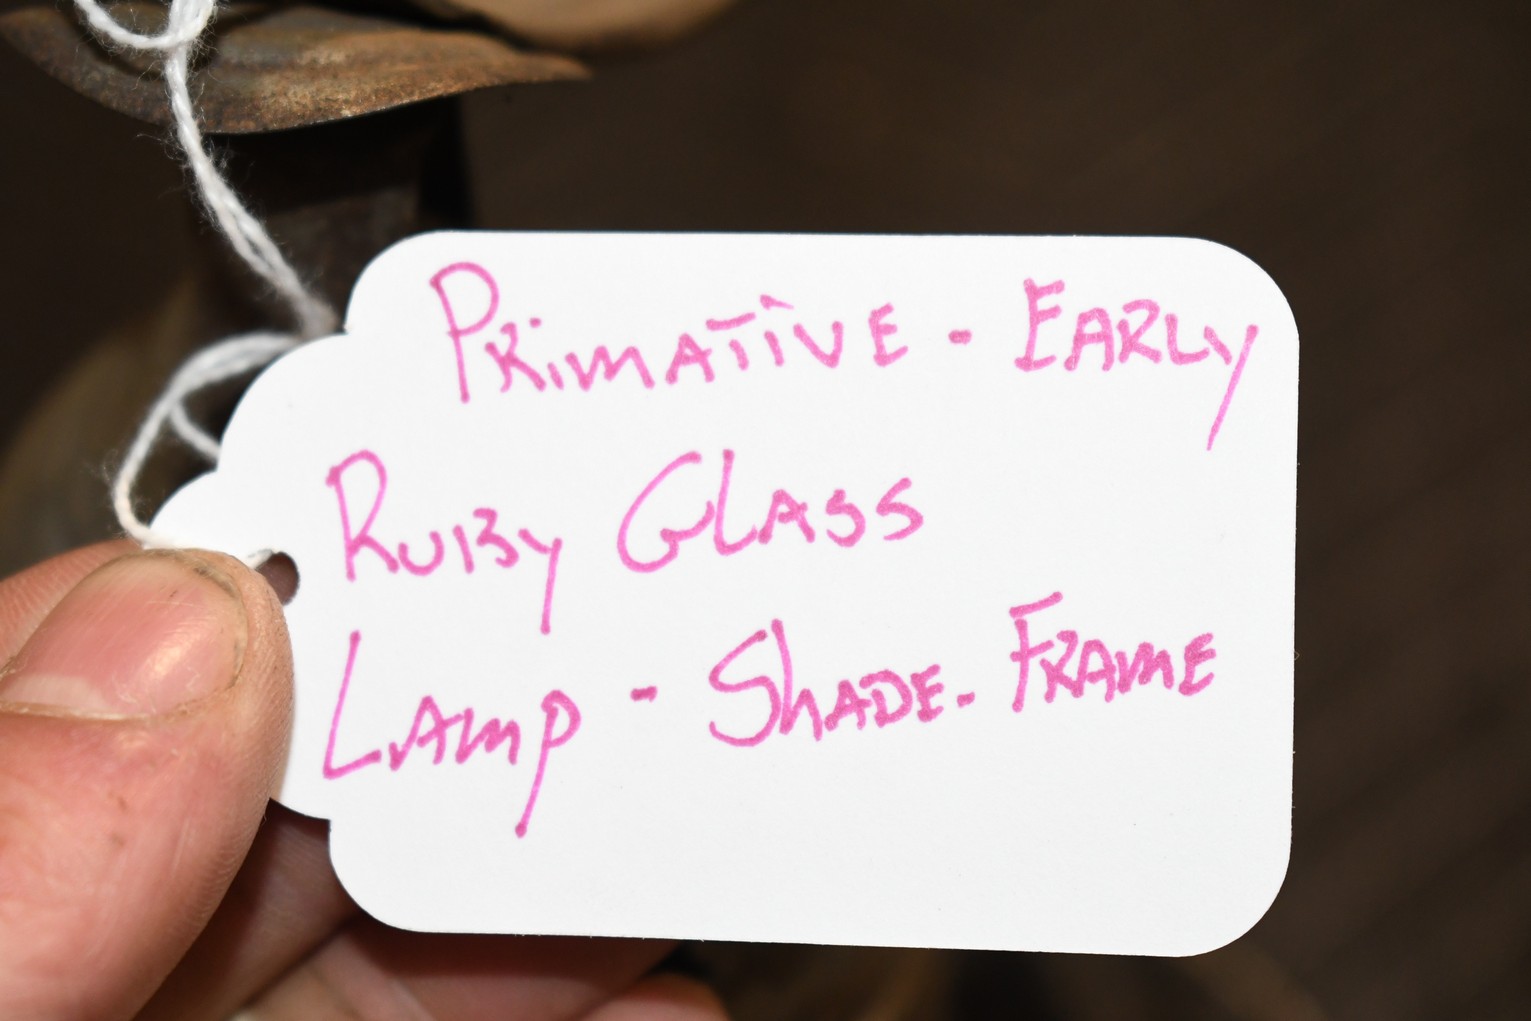 PRiMATiVE - EARLY
RUBY GLASS
LAMP - ShADE. FRAME